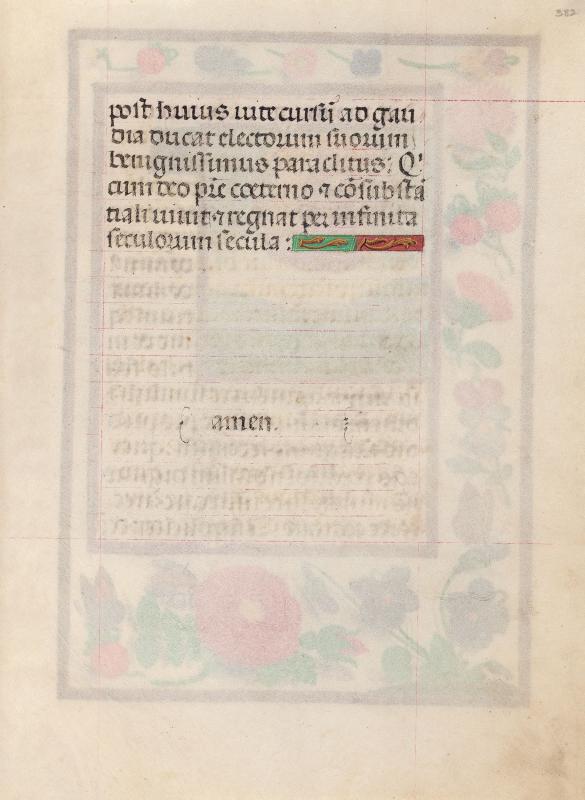 382
post huius uite cursū ad gau
dia ducat electorum suorum
benignissimus paraclitus; Q'
cum deo pr̄e coeterno ⁊ cōsubstā
tiali uiuit ⁊ regnat per infinita
seculorum secula :
amen.